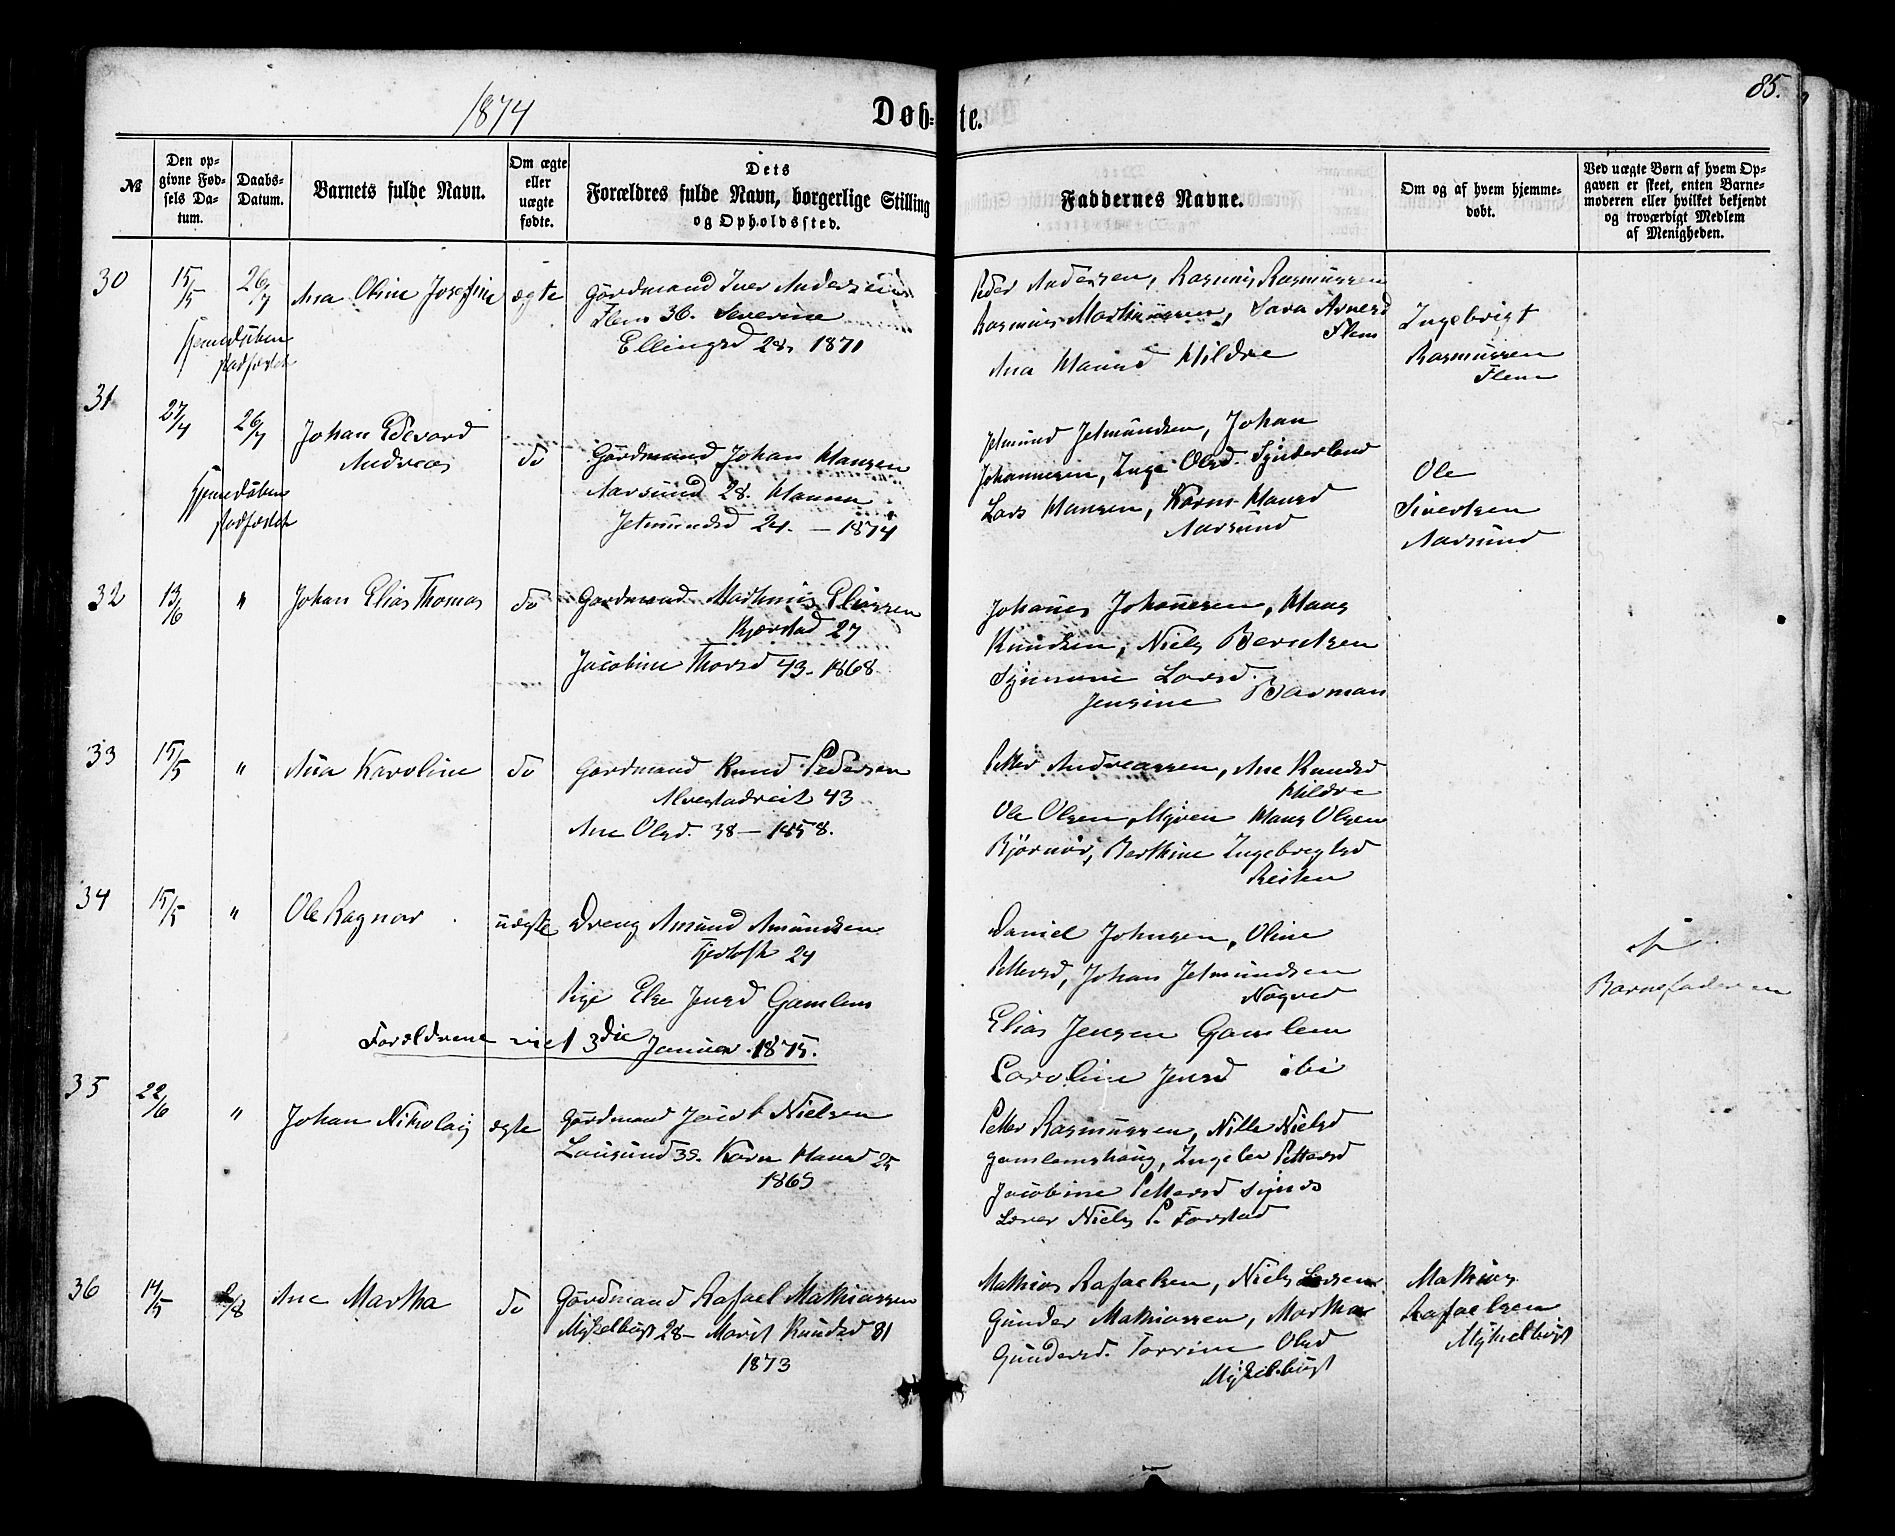 1874
Døb-te.
85.
№
Den op-
givne Fød-
sels Da-
tum.
Daabs-
Datum.
Barnets fulde Navn.
Om ægte
eller
uægte
fødte.
Dets
Forældres fulde Navn, borgerlige Stilling
og Opholdssted.
Faddernes Navne.
Om og af hvem hjemme-
døbt.
Ved uægte Børn af hvem Op-
gaven er skeet, enten Barne-
moderen eller hvilket bekjendt
og troværdigt Medlem
af Menigheden.
30 15/5 26/7 Ana Oline Josefine ægte
hjemedøben
stadfæstet
Gårdmand Iver Andersen
Flem 36. Severine
Ellingsd 28. 1871
Peder Andersen, Rasmus Rasmussen
Rasmus Martinussen, Sara Arnesd
Flem
Ana Hansd Hildre
Ingebrigt
Rasmussen
Flem
31 27/4 26/7 Johan Edevard
Andreas do
hjemedøben
stadfæstet
Gårdmand Johan Hansen
Aarsund 28. Hanna
Jetmundsd 24. — 1874
Jetmund Jetmundsen, Johan
Johannesen, Inge Olsd. Synderland
Lars Hansen, Karen Hansd
Aarsund
Ole
Sivertsen
Aarsund
32 13/6 " Johan Elias Thomas do
Gardmand Mathias Eliassen
Kjerstad 27
Jacobine Thorsd 43. 1868
Johanes Johanesen, Hans
Knudsen, Niels Berntsen
Synnøve Larsd.
Jensine Barman
33 15/5 " Ana Karoline do
Gardmand Knud Pedersen
Alvestadreit 43
Ane Olsd. 38 — 1858.
Petter Andreassen, Ane Knudsd
Hildre
Ole Olsen, Myren Hans Olsen
Bjørnør, Berthine Ingebregtsd
Reiten
34 15/5 " Ole Ragnar uægte
Dreng Amund Amundsen
Fjertoft 24
Pige Else Jensd Gamlem
Forældrene viet 3die Januar 1875.
Daniel Johnsen, Oline
Pettersd, Johan Jetmundsen
Nogved
Elias Jensen Gamlem
Caroline Jensd ibi
af
Barnefaderen
35 22/6 " Johan Nikolaij ægte
Gårdmand Jacob Nielsen
Lausund 38. Karen Hansd 25
1865
Petter Rasmussen, Nille Nielsd
Gamlemshaug, Ingeler Pettersd
Jacobine Pettersd Synes
Lærer Niels P. Farstad
36 14/5 2/8 Ane Martha do
Gårdmand Rafael Mathiassen
Myklebust 28 — Marit Knudsd 31
1873
Mathias Rafaelsen, Niels Larsen
Gunder Mathiassen, Martha
Gundersd. Torrine Olsd
Myklebust
Mathias
Rafaelsen
Myklebust